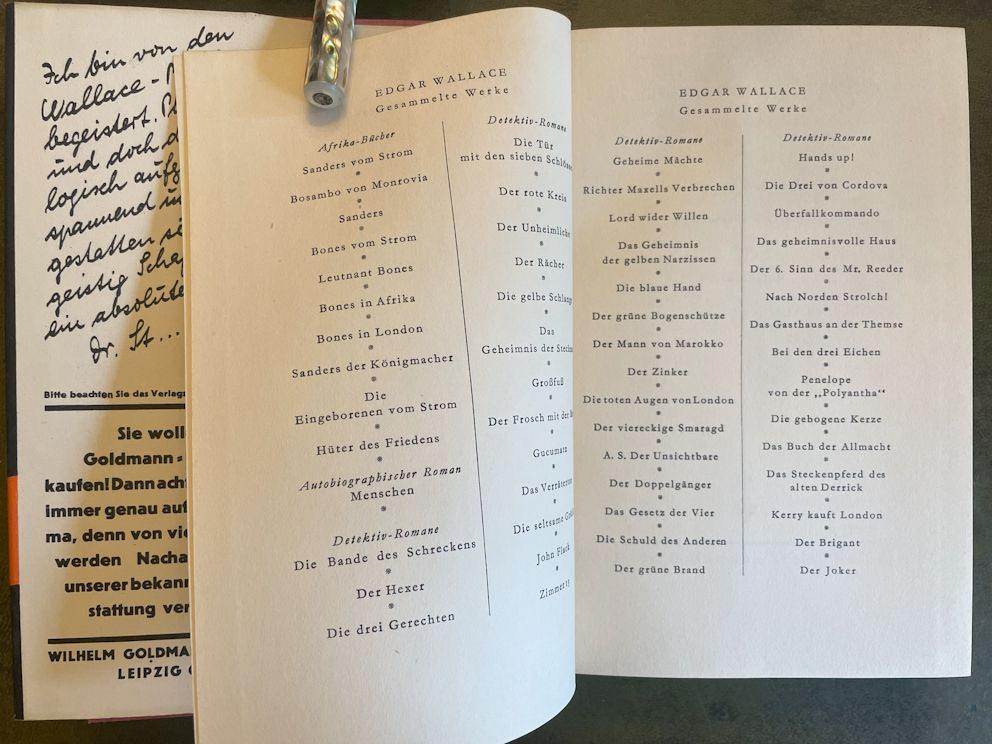 Ich bin von den
Wallace-
begeistert.
und doch
logisch
spannend
gestatten
geistig
ein
Dr. St...
Bitte beachten Sie das
Sie
Goldmann-
kaufen! Dann
immer genau
ma, denn von
werden
unserer
stattung
WILHELM
LEIPZIG
EDGAR WALLACE
Gesammelte Werke
Afrika-Bücher
Sanders vom Strom
Bosambo von Monrovia
Sanders
Bones vom Strom
Leutnant Bones
Bones in Afrika
Bones in London
Sanders der Königmacher
Die
Eingeborenen vom Strom
Hüter des Friedens
Autobiographischer Roman
Menschen
Detektiv-Romane
Die Bande des Schreckens
Der Hexer
Die drei Gerechten
Detektiv-Romane
Die Tür
mit den sieben
Der rote Kreis
Der
Der Rächer
Die gelbe
Das
Geheimnis der
Großfuß
Der Frosch mit der
Gucumatz
Das
Die seltsame
John Flack
Zimmer
EDGAR WALLACE
Gesammelte Werke
Detektiv-Romane
Geheime Mächte
Richter Maxells Verbrechen
Lord wider Willen
Das Geheimnis
der gelben Narzissen
Die blaue Hand
Der grüne Bogenschütze
Der Mann von Marokko
Der Zinker
Die toten Augen von London
Der viereckige Smaragd
A. S. Der Unsichtbare
Der Doppelgänger
Das Gesetz der Vier
Die Schuld des Anderen
Der grüne Brand
Detektiv-Romane
Hands up!
Die Drei von Cordova
Überfallkommando
Das geheimnisvolle Haus
Der 6. Sinn des Mr. Reeder
Nach Norden Strolch!
Das Gasthaus an der Themse
Bei den drei Eichen
Penelope
von der „Polyantha“
Die gebogene Kerze
Das Buch der Allmacht
Das Steckenpferd des
alten Derrick
Kerry kauft London
Der Brigant
Der Joker